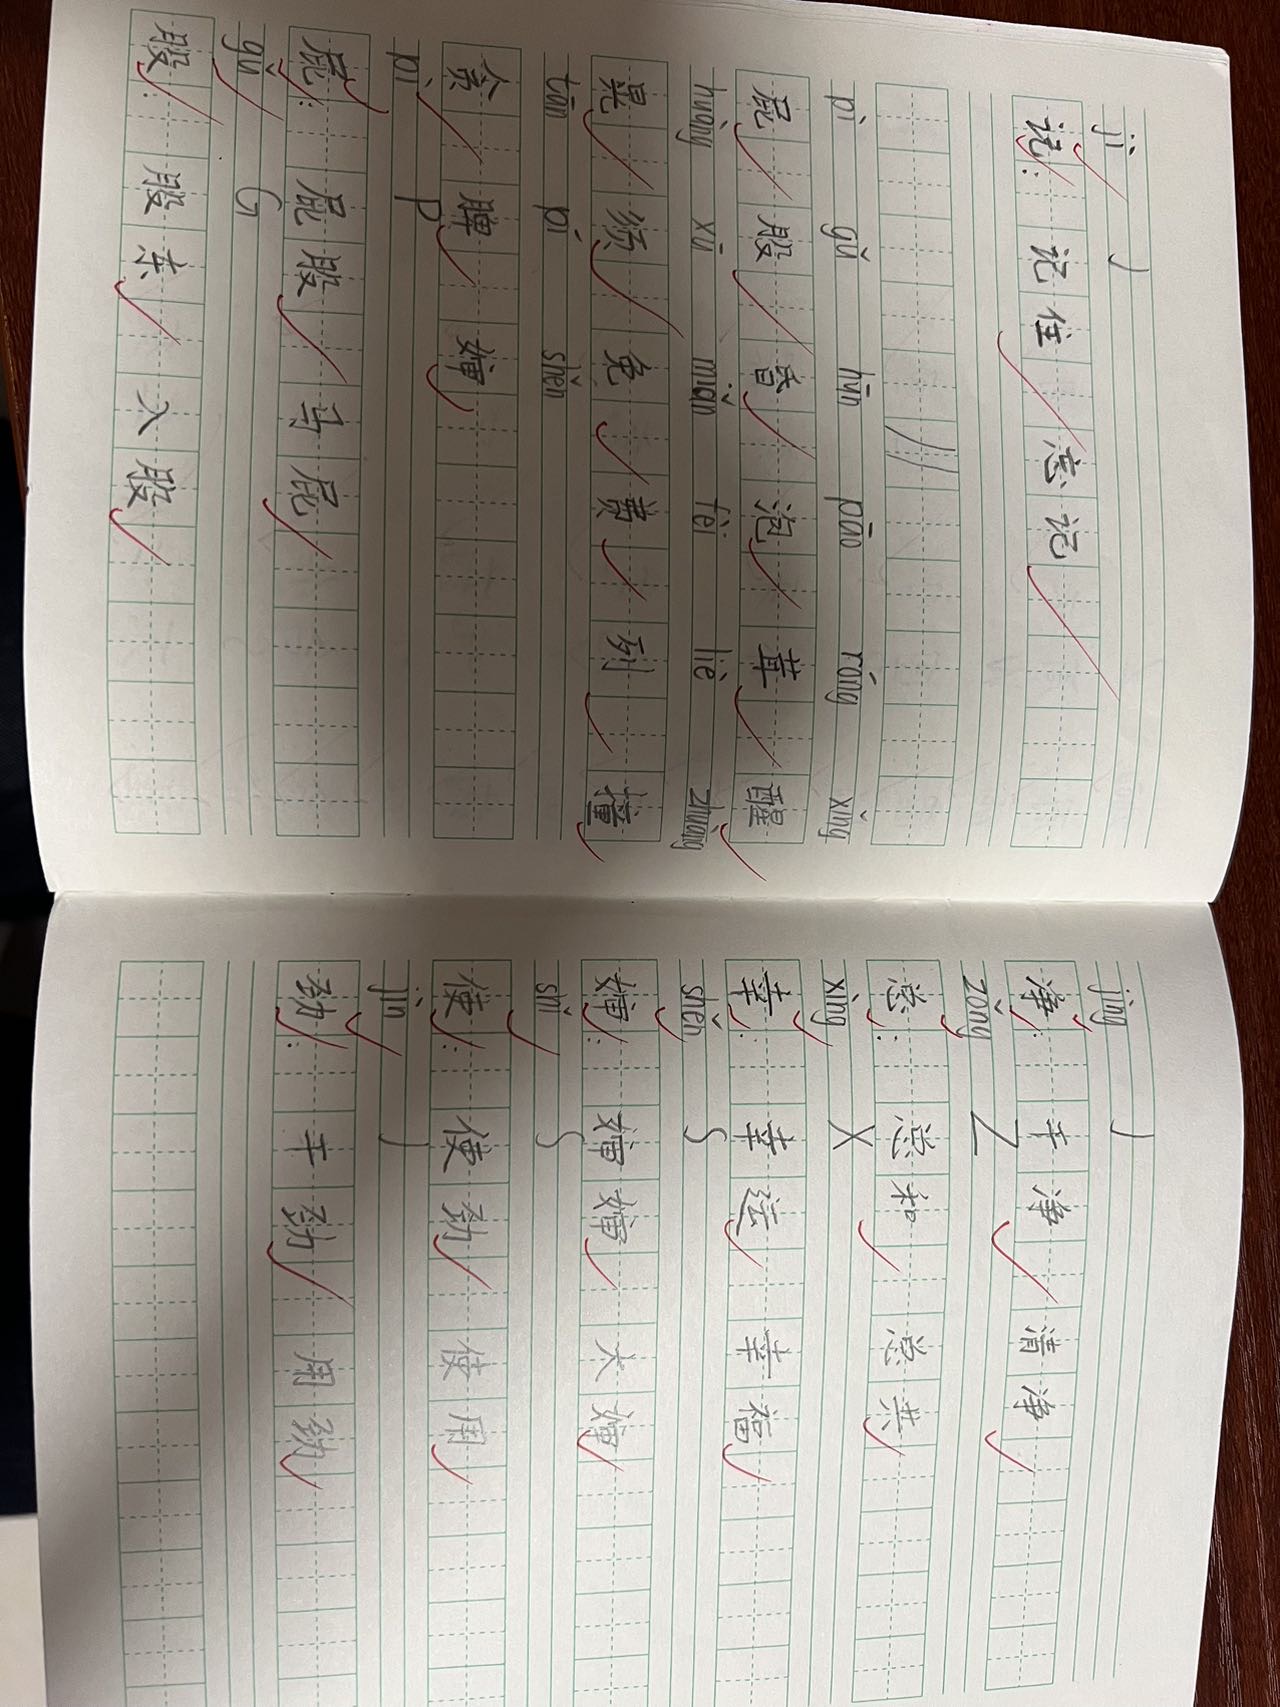 jì J
记: 记住 忘记
pì gǔ hūn pāo róng xǐng
屁 股 昏 泡 茸 醒
huàng xū miǎn fèi liè zhuàng
晃 须 免 费 列 撞
tān pí shěn
脾 婶
pì P
屁: 屁股 马屁
gǔ G
股: 股东 入股
jìng J
净: 干净 清净
zǒng Z
总: 总和 总共
xìng X
幸: 幸运 幸福
shěn S
婶: 婶婶 大婶
shǐ S
使: 使劲 使用
jìn J
劲: 干劲 用劲